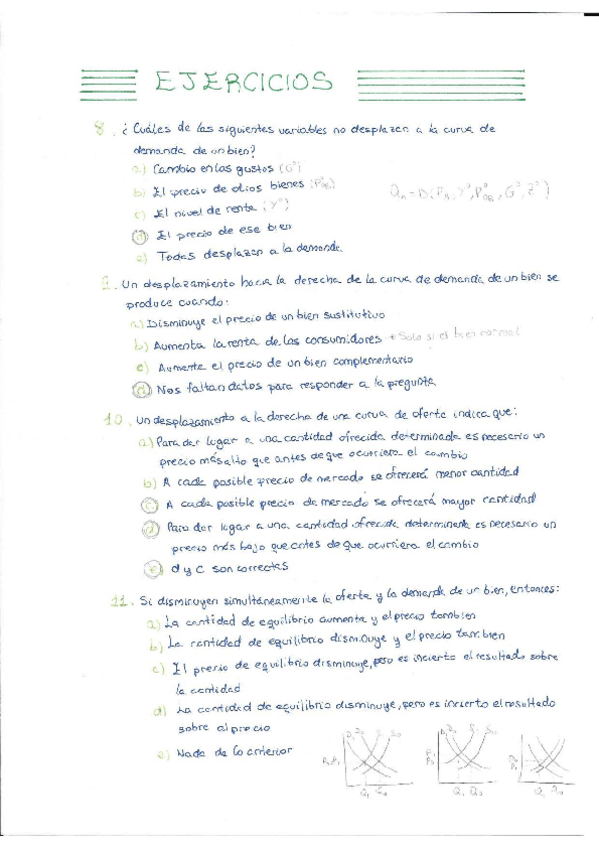 EJERCICIOS
8. ¿Cuáles de las siguientes variables no desplazan a la curva de
demanda de un bien?
a) Cambio en los gustos (G°)
b) El precio de otros bienes (P°OB)
c) El nivel de renta (Y°)
d) El precio de ese bien
e) Todas desplazan a la demanda
9. Un desplazamiento hacia la derecha de la curva de demanda de un bien se
produce cuando:
a) Disminuye el precio de un bien sustitutivo
b) Aumenta la renta de los consumidores → Solo si el bien normal
c) Aumente el precio de un bien complementario
d) Nos faltan datos para responder a la pregunta
10. Un desplazamiento a la derecha de una curva de oferta indica que:
a) Para dar lugar a una cantidad ofrecida determinada es necesario un
precio más alto que antes de que ocurriera el cambio
b) A cada posible precio de mercado se ofrecerá menor cantidad
c) A cada posible precio de mercado se ofrecerá mayor cantidad
d) Para dar lugar a una cantidad ofrecida determinada es necesario un
precio más bajo que antes de que ocurriera el cambio
e) d y c son correctas
11. Si disminuyen simultáneamente la oferta y la demanda de un bien, entonces:
a) La cantidad de equilibrio aumenta y el precio también
b) La cantidad de equilibrio disminuye y el precio también
c) El precio de equilibrio disminuye, pero es incierto el resultado sobre
la cantidad
d) La cantidad de equilibrio disminuye, pero es incierto el resultado
sobre el precio
e) Nada de lo anterior